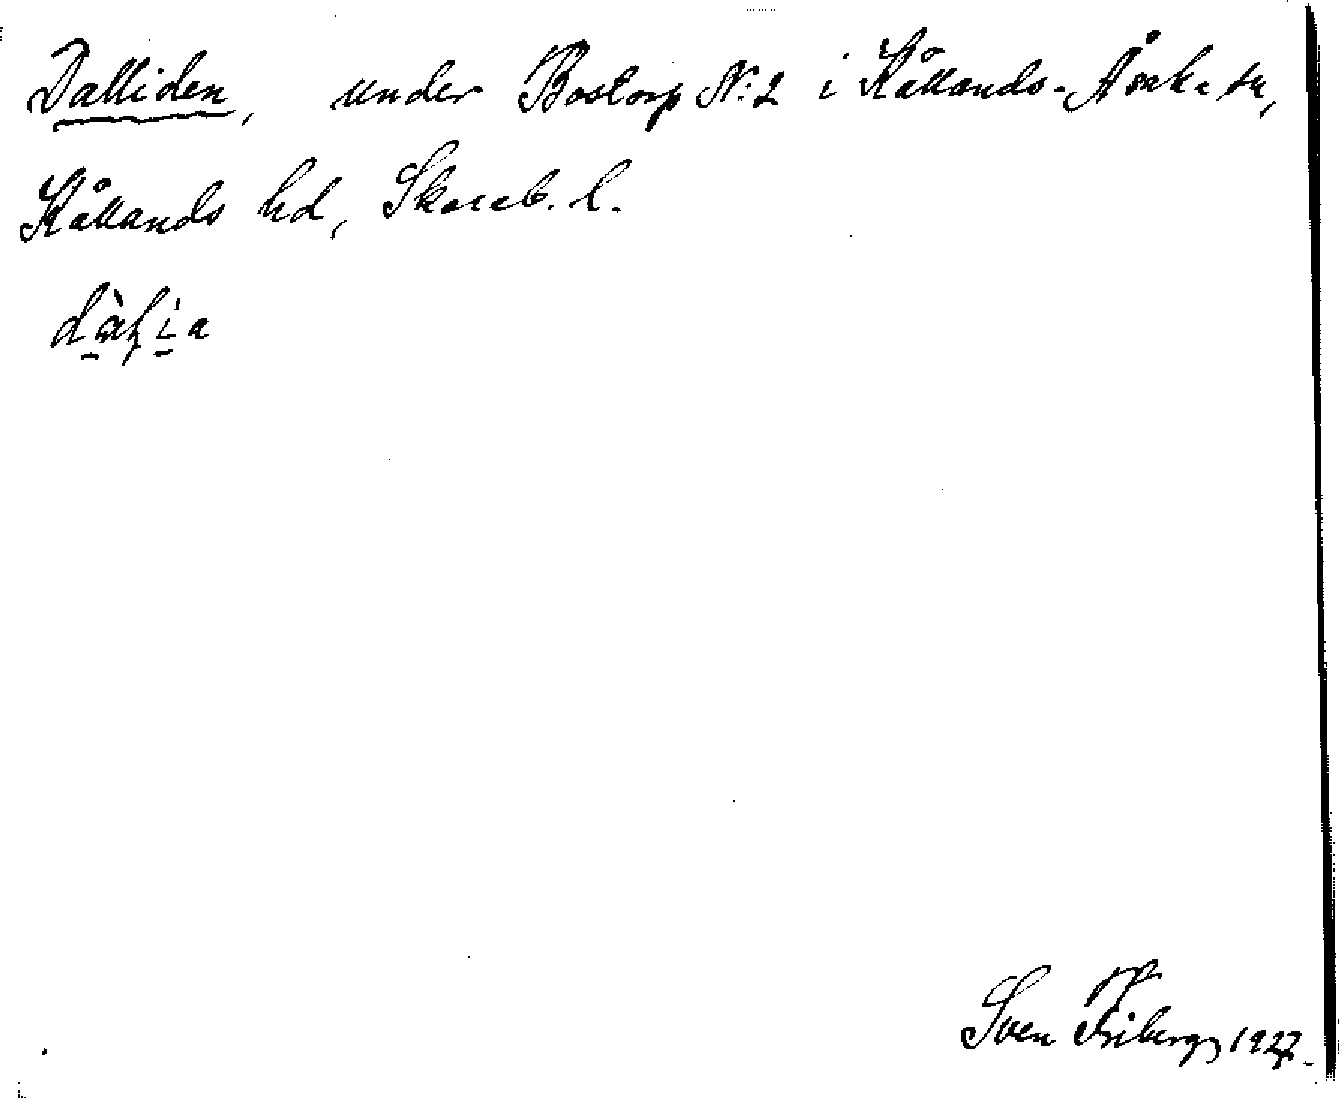 Dalliden, under Bostorp N:2 i Kållands-Åsaka sn,
Kållands hd, Skarab. l.
Sven Friberg 1927.